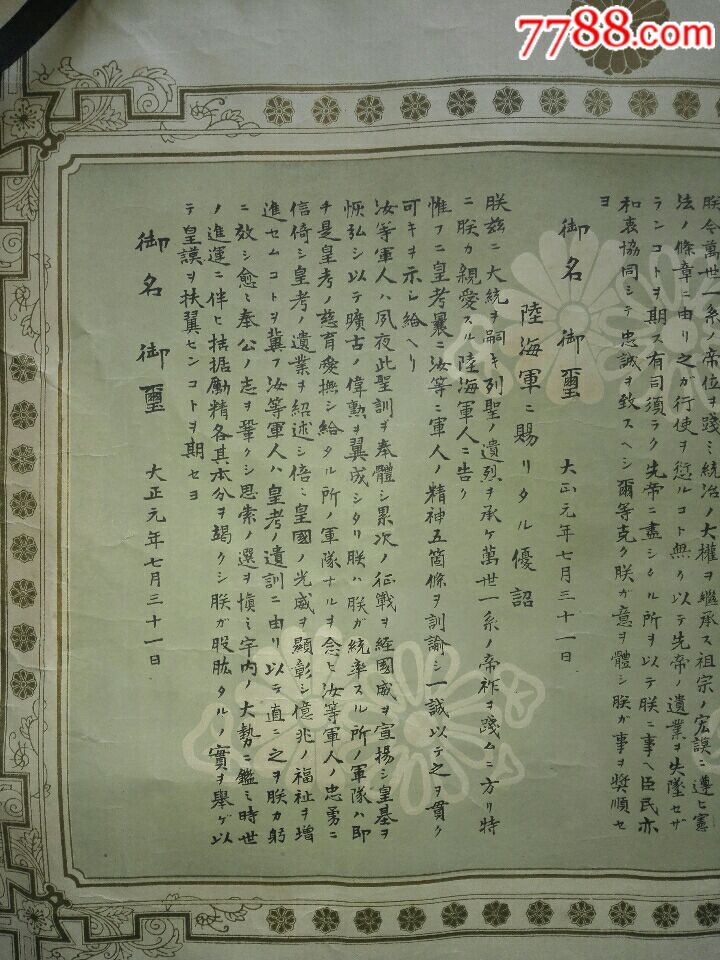 7788.com
朕今萬世一系ノ帝位ヲ踐ミ統治ノ大權ヲ繼承ス祖宗ノ宏謨ニ遵ヒ憲
法ノ條章ニ由リ之ガ行使ヲ愆ルコト無ク以テ先帝ノ遺業ヲ失墜セザ
ランコトヲ期ス有司須ラク先帝ニ盡シタル所ヲ以テ朕ニ事ヘ臣民亦
和衷協同シテ忠誠ヲ致スヘシ爾等克ク朕ガ意ヲ體シ朕ガ事ヲ奬順セ
ヨ
御名御璽
大正元年七月三十一日
陸海軍ニ賜リタル優詔
朕玆ニ大統ヲ嗣キ列聖ノ遺烈ヲ承ケ萬世一系ノ帝祚ヲ踐ムニ方リ特
ニ朕カ親愛スル陸海軍人ニ告ク
惟フニ皇考曩ニ汝等ニ軍人ノ精神五箇條ヲ訓諭シ一誠以テ之ヲ貫ク
可キヲ示シ給ヘリ
汝等軍人ハ夙夜此聖訓ヲ奉體シ累次ノ征戰ヲ經國威ヲ宣揚シ皇基ヲ
恢弘シ以テ曠古ノ偉勲ヲ翼成シタリ朕ハ朕ガ統率スル所ノ軍隊ハ即
チ是皇考ノ慈育愛撫シ給タル所ノ軍隊ナルヲ念ヒ汝等軍人ノ忠勇ニ
信倚シ皇考ノ遺業ヲ紹述シ倍ミ皇國ノ光威ヲ顯彰シ億兆ノ福祉ヲ增
進セムコトヲ冀フ汝等軍人ハ皇考ノ遺訓ニ由リ以テ直ニ之ヲ朕カ躬
ニ效シ愈ミ奉公ノ志ヲ鞏クシ思索ノ選ヲ愼ミ宇内ノ大勢ニ鑑ミ時世
ノ進運ニ伴ヒ拮据勵精各其本分ヲ竭クシ朕ガ股肱タルノ實ヲ舉ゲ以
テ皇謨ヲ扶翼センコトヲ期セヨ
御名御璽
大正元年七月三十一日